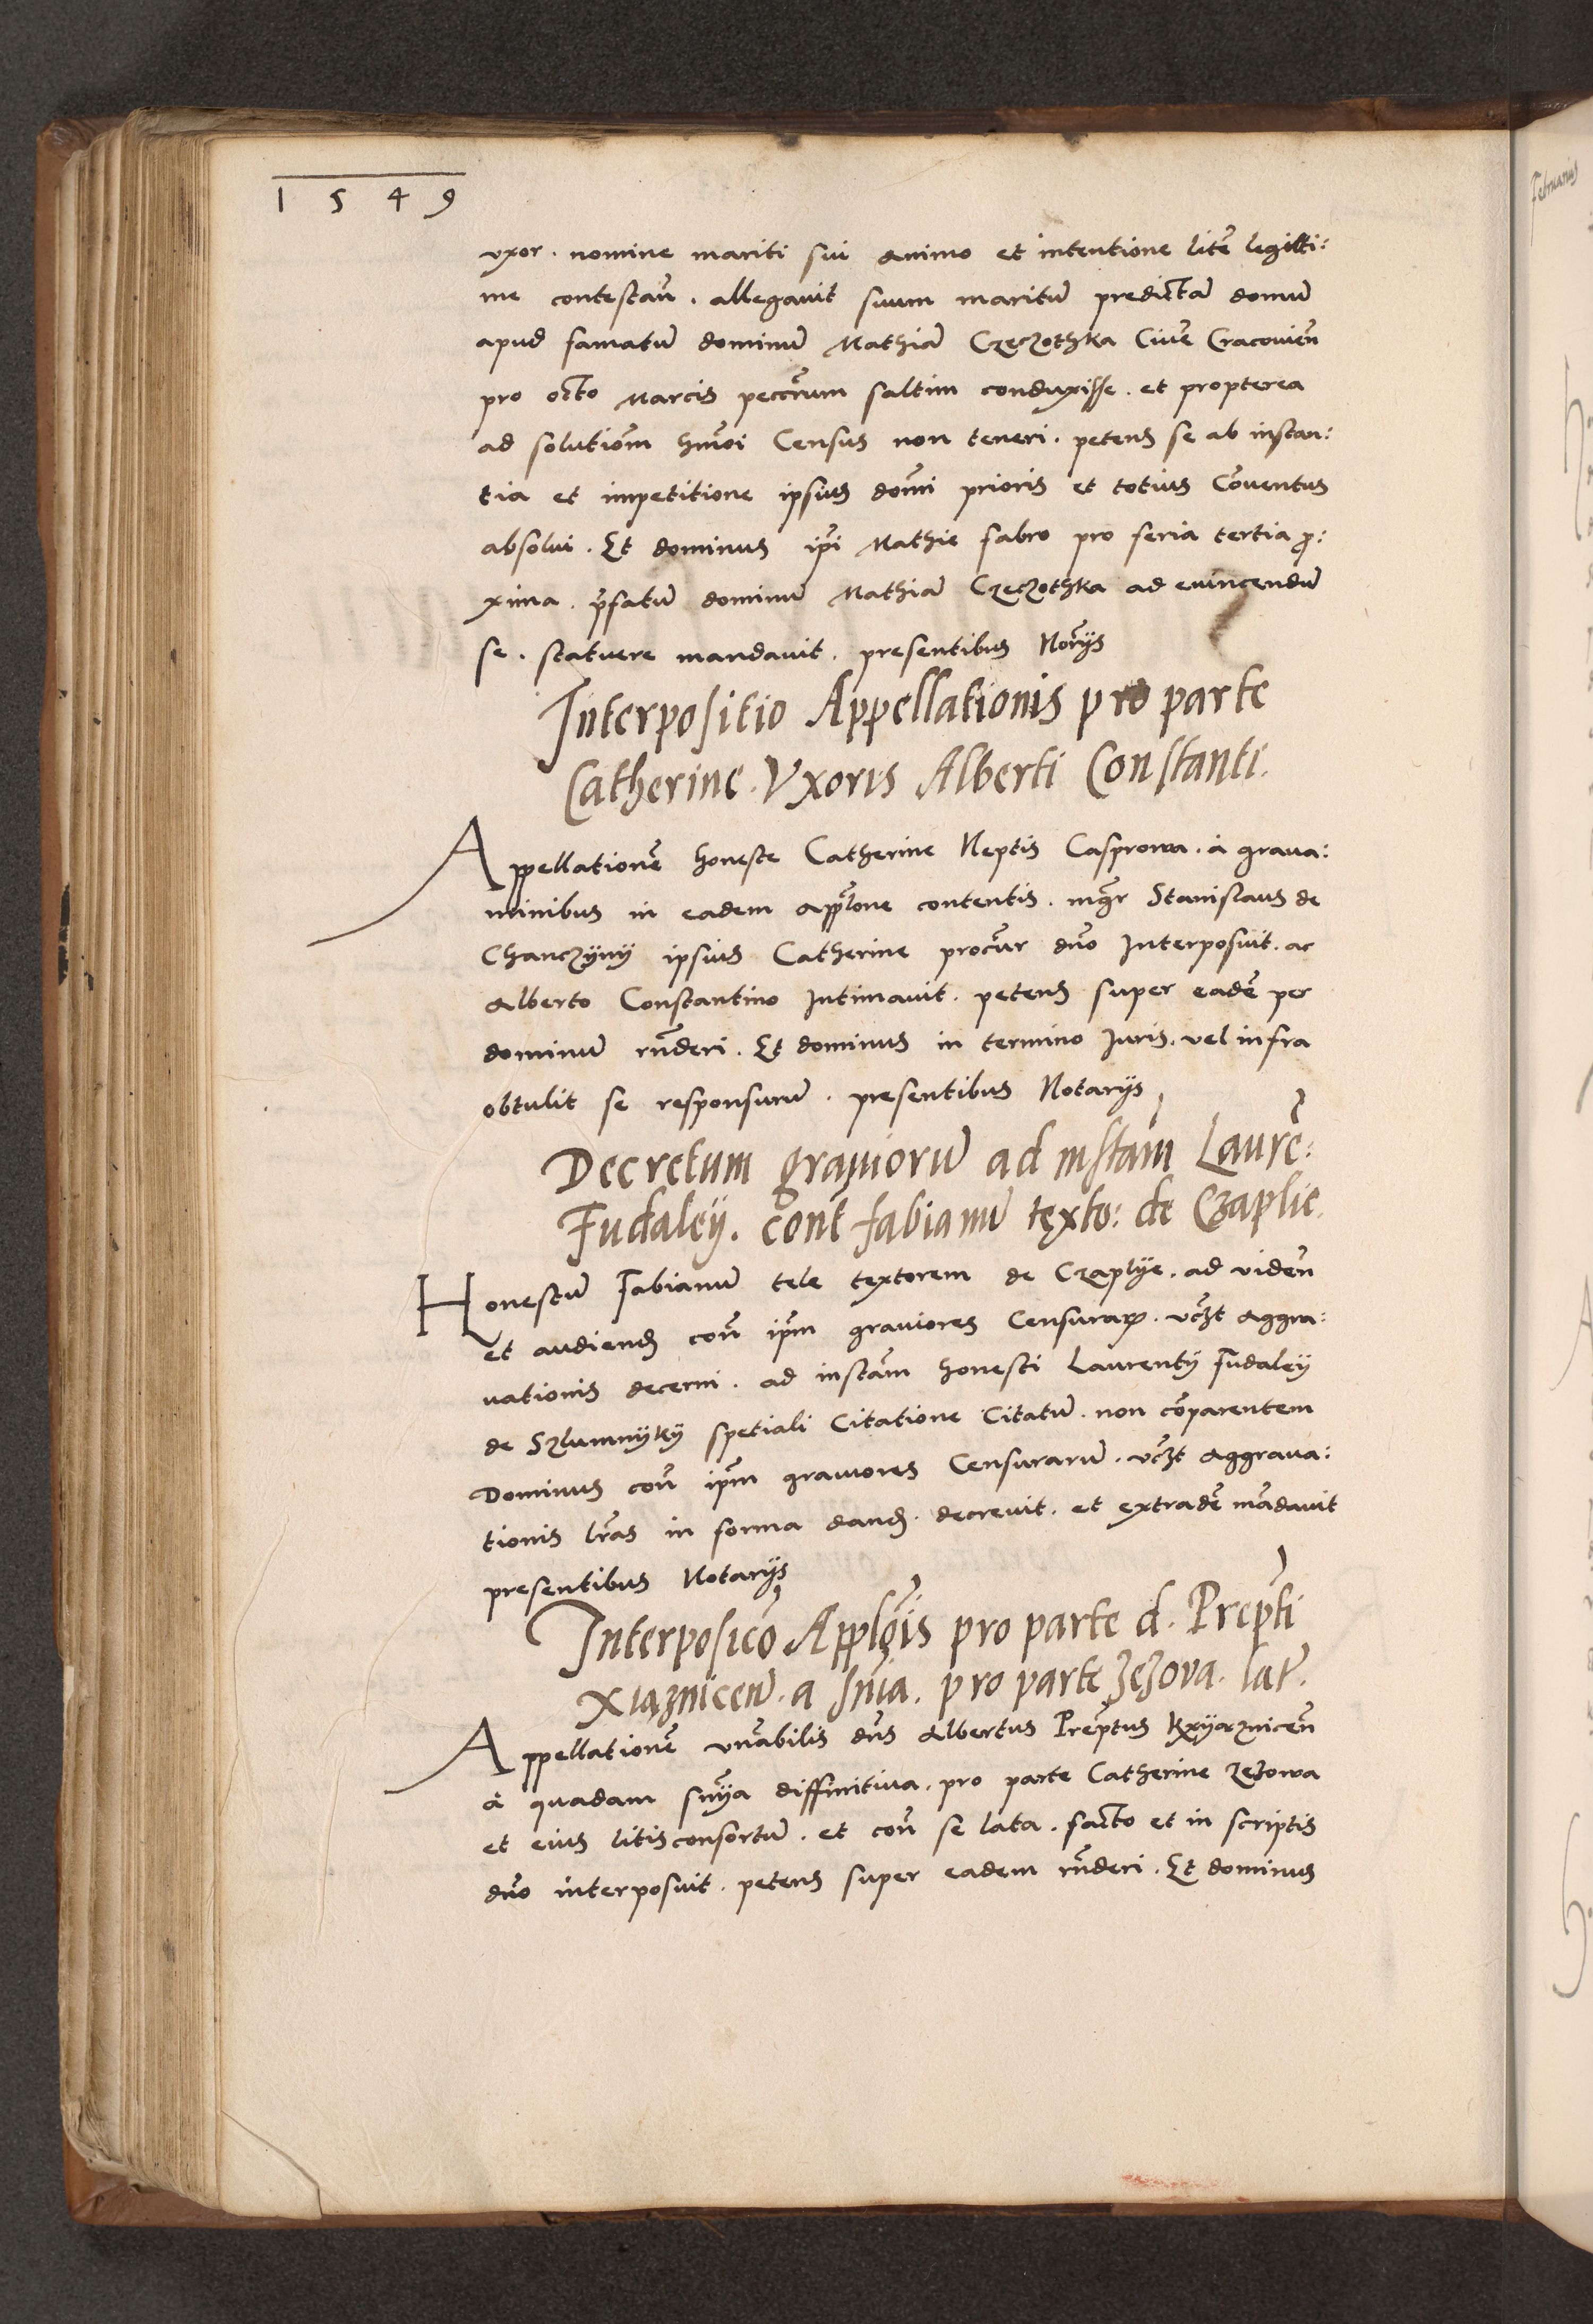 1549
vxor. nomine mariti sui animo et intentione litē legitti:
me contestañ. allegauit suum maritū predictā domū
apud famatū dominū Mathiā Czeczothka Ciuē Cracovień
pro octo Marcis peccr̄um saltim conduxisse. et propterea
ad solutiōm hm̄oi Census non teneri. petens se ab instan:
tia et impetitione ipsius dom̄i prioris et totius Cōuentus
absolui. Et dominus ip̄i Mathie fabro pro feria tertia p̄ro:
xima. p̄fatū dominū Mathiā Czeczothka ad euincendū
se. statuere mandauit. presentibus Nōrijs
Interpositio Appellationis pro parte
Catherine. Vxoris Alberti Constanti.
Appellationē honeste Catherine Neptis Casprowa. à graua:
minibus in eadem app̄lone contentis. mḡr Stanislaus de
Chanczyny ipsius Catherine procūr dn̄o Interposuit. ac
Alberto Constantino Intimauit. petens super eadē per
dominū rn̄deri. Et dominus in termino Iuris. vel infra
obtulit se responsurū. presentibus Notarijs
Decretum grauiorū ad instām Laurē:
Fudaley. cont̄ fabianū texto: de Czaplie.
Honestū Fabianū tele textorem de Czaplye. ad videñ
et audiend̄ coñ ip̄m grauiores Censurarꝝ. vcz̄t Aggra:
uationis decerni. ad instām honesti Laurentÿ Fudaley
de Szlumnyky spetiali Citatione Citatū. non cōparentem
Dominus coñ ip̄m grauiores Censurarū. vcz̄t Aggraua:
tionis lr̄as in forma dand̄. decreuit. et extradē mādauit
presentibus Notarijs
Interposicō App̄lōis pro parte d. Prep̄ti
Xiązniceñ. a sn̄ia. pro parte Zezova. lat̄.
Appellationē vn̄abilis dn̄s Albertus Prep̄tus Kxyąznicen̄
à quadam sn̄ya diffinitiua. pro parte Catherine Zezowa
et eius litisconsortū. et coñ se lata. facto et in scriptis
dn̄o interposuit. petens super eadem rn̄deri. Et dominus
Februarius